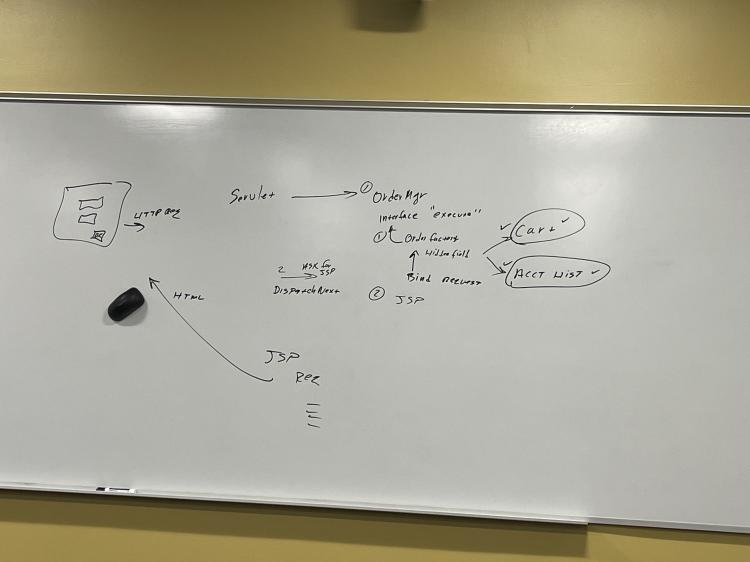 HTTP Req
Servlet
① OrderMgr
Interface "execute"
① Order Factory
Hidden field
Bind Request
② JSP
Cart
ACCT HIST
2 ASK for JSP
Dispatch Next
HTML
JSP
Req